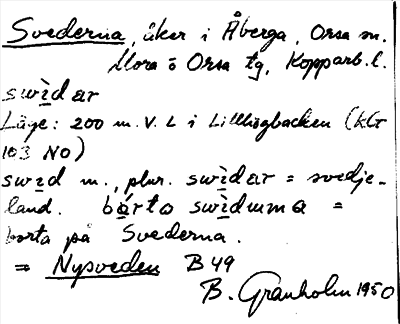 Svederna, åker i Åberga, Orsa sn.
Mora o Orsa tg, Kopparb. l.
swìdar
Läge: 200 m. V. L i Lillhögbacken (KG
103 NO)
swìd m., plur. swìdar = svedje-
land. bárta swìduma =
borta på Svederna.
= Nysveden B 49
B. Granholm 1950